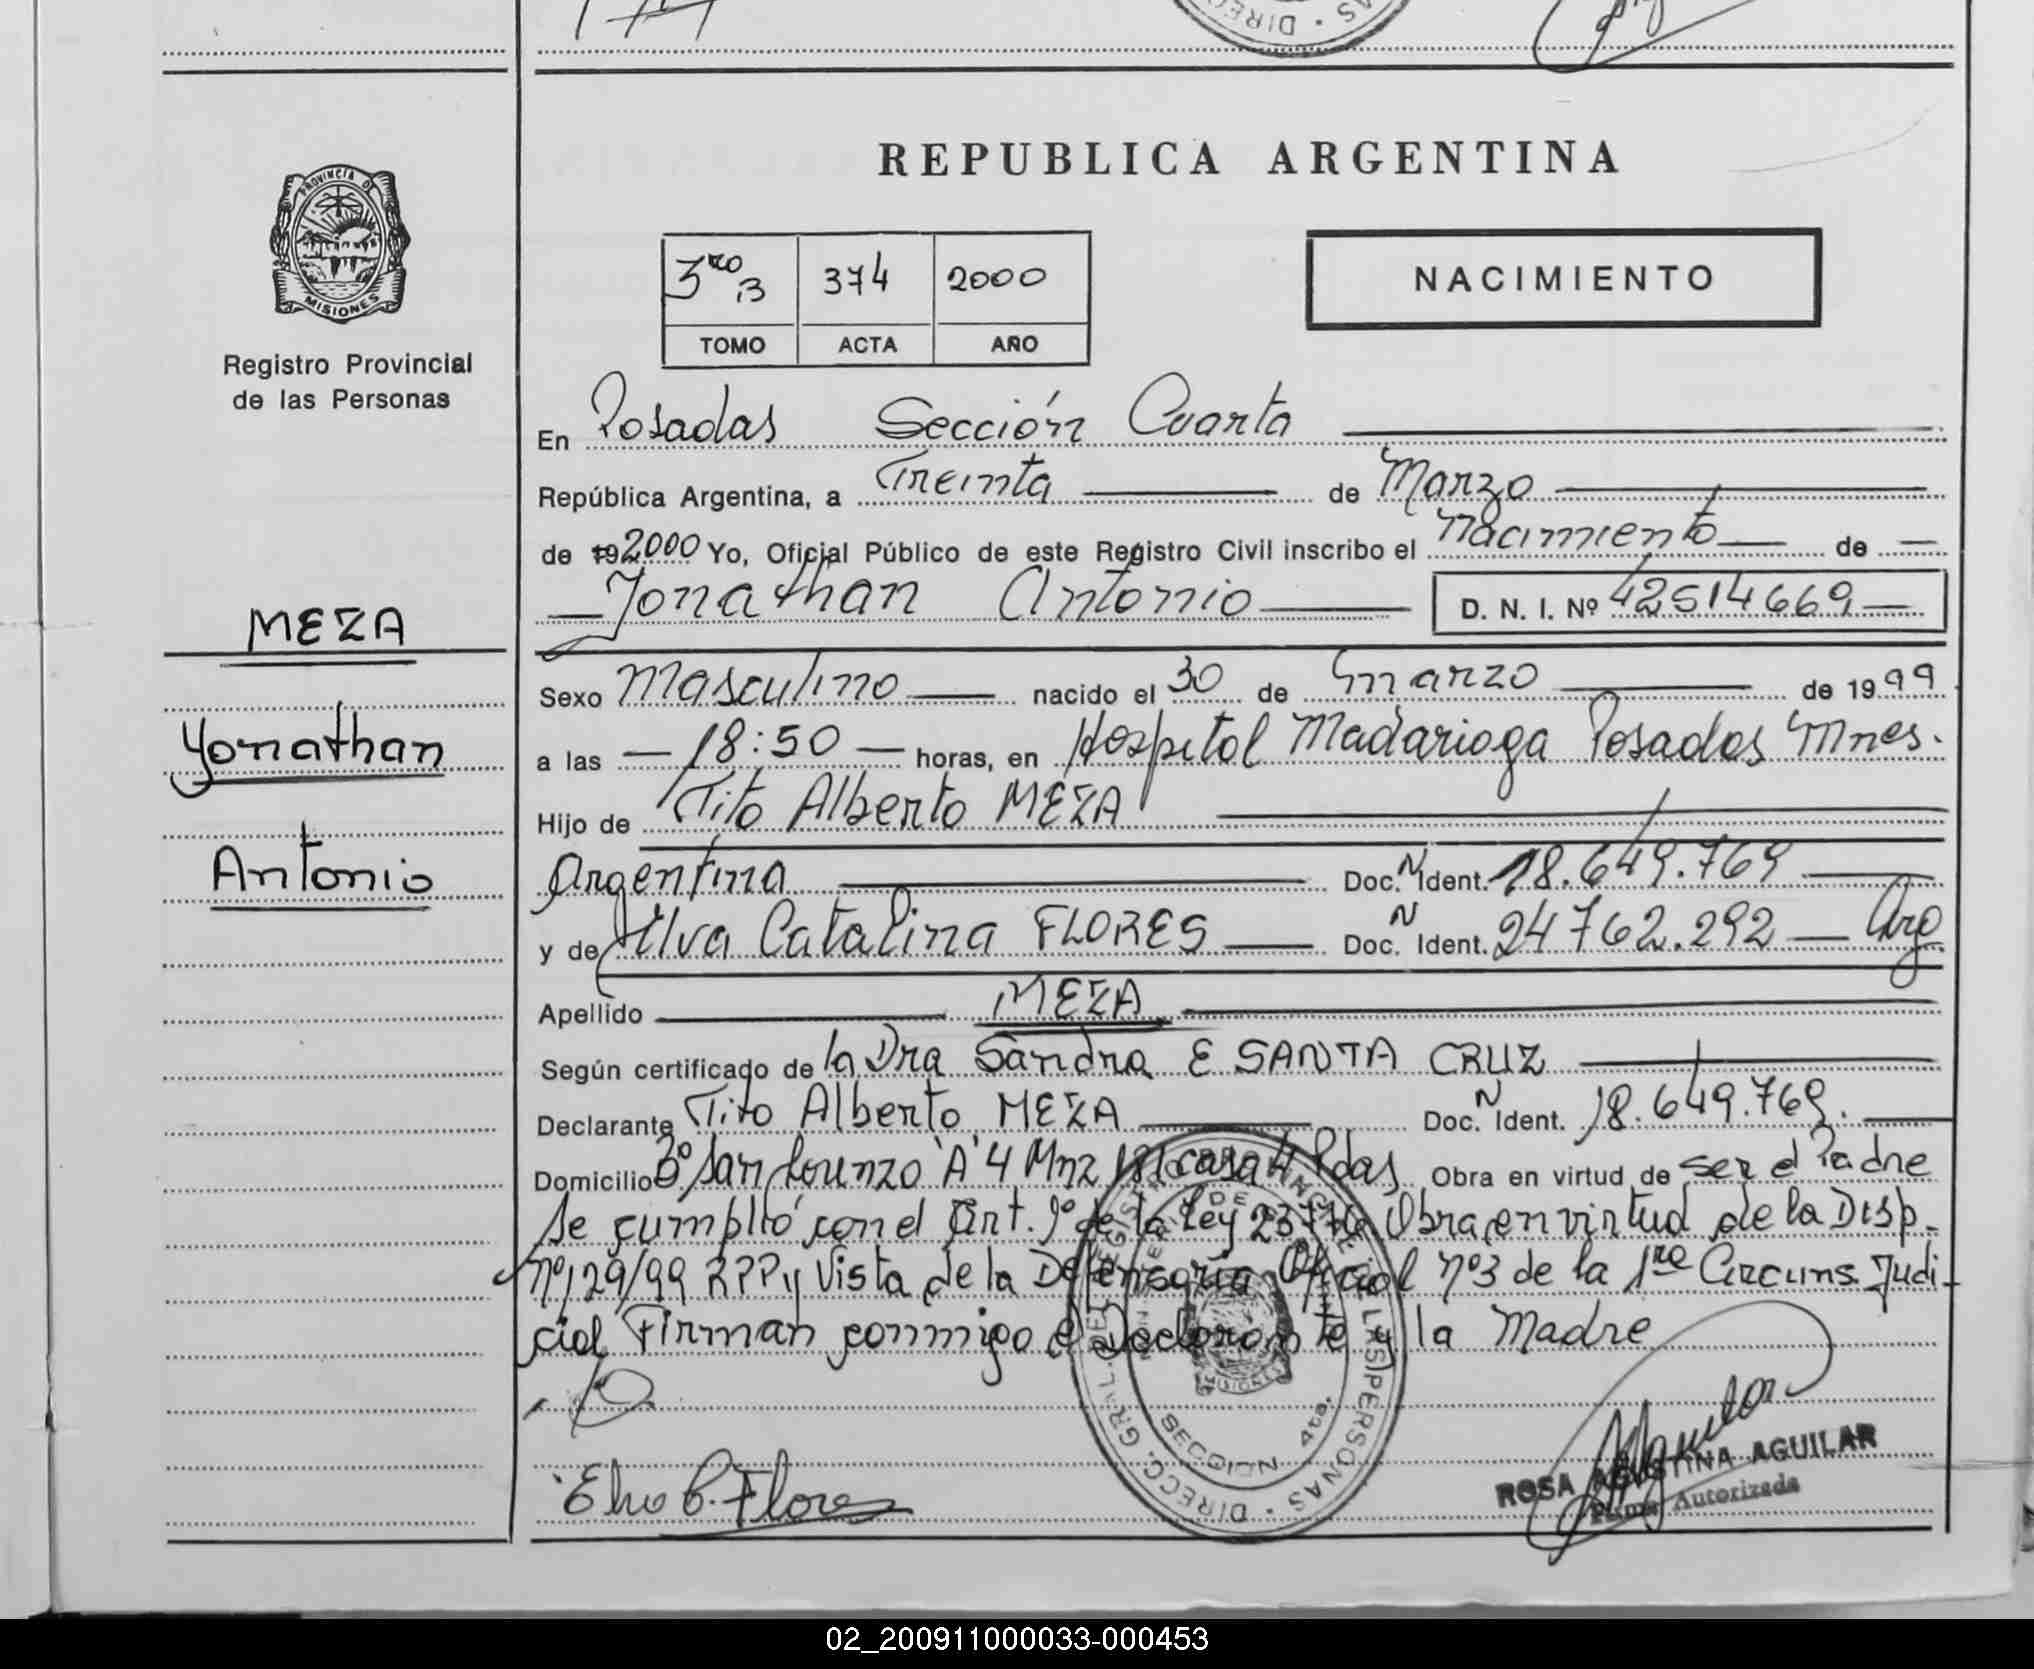 DIREC
AS
REPUBLICA ARGENTINA
PROVINCIA DE
MISIONES
Registro Provincial
de las Personas
3ro B 374 2000
TOMO ACTA AÑO
NACIMIENTO
En Posadas Sección Cuarta
República Argentina, a Treinta de Marzo
de 192000 Yo, Oficial Público de este Registro Civil inscribo el Nacimiento de
Yonathan Antonio D. N. I. Nº 42514669
MEZA
Yonathan
Antonio
Sexo Masculino nacido el 30 de marzo de 1999
a las 18:50 horas, en Hospital Madariaga Posadas Mnes.
Hijo de Tito Alberto MEZA
Argentina Doc. N Ident. 18.649.769
y de Elva Catalina FLORES Doc. N Ident. 24762.292 Arg
Apellido MEZA
Según certificado de la Dra Sandra E SANTA CRUZ
Declarante Tito Alberto MEZA Doc. N Ident. 18.649.769.
Domicilio Bº San Lorenzo "A" 4 Mnz 181 casa 4 Pdas Obra en virtud de ser el Padre
Se cumplió con el Art. 9º de la Ley Obra en virtud de la Disp.
Nº 129/99 RPP y Vista de la Defensoria Oficial nº3 de la 1ra Circuns. Judi-
cial Firman conmigo el Declarante y la Madre
DIRECC. GRAL. DEL REGISTRO PROVINCIAL DE LAS PERSONAS
MISIONES
SECCION 4ta.
Elva C. Flores
ROSA AGUSTINA AGUILAR
Firma Autorizada
02_200911000033-000453